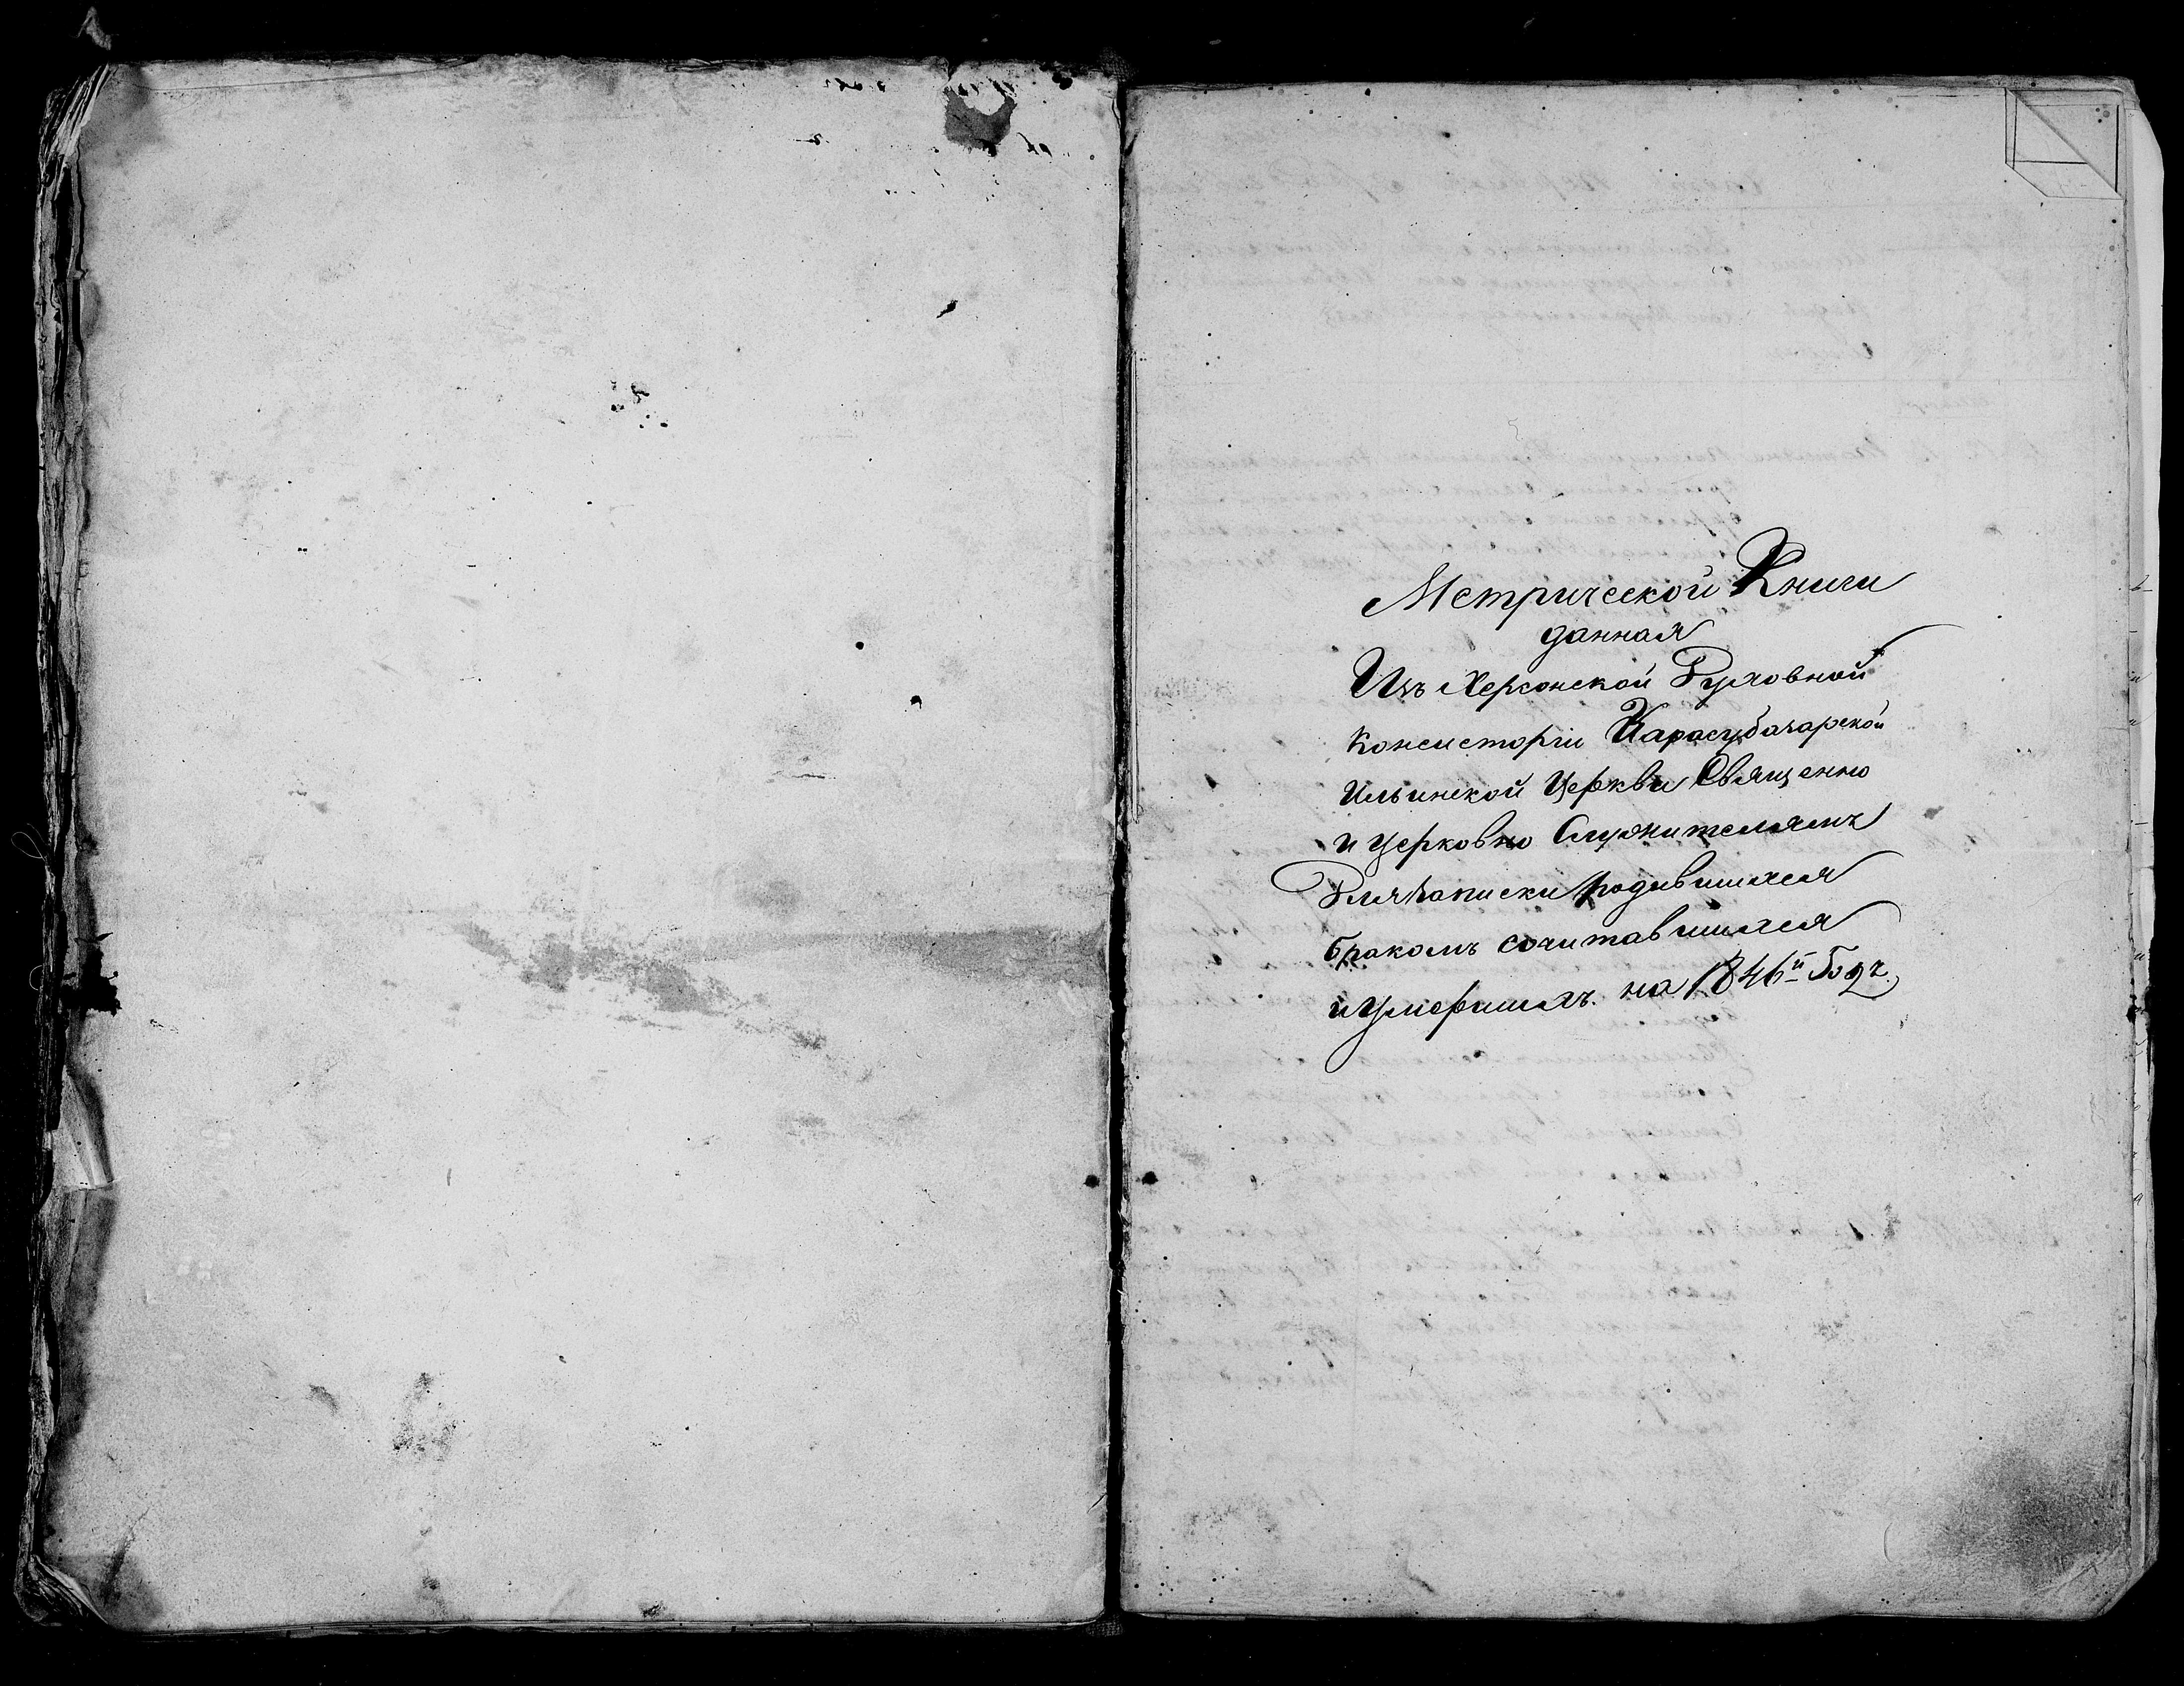 Метрической Книги
данная
Изъ Херсонской Духовной
Консисторіи Карасубазарской
Ильинской Церкви Священно
и церковно Служителямъ
Для Записки родившихся
бракомъ сочитавшихся
и Умершихъ. на 1846й Годъ.